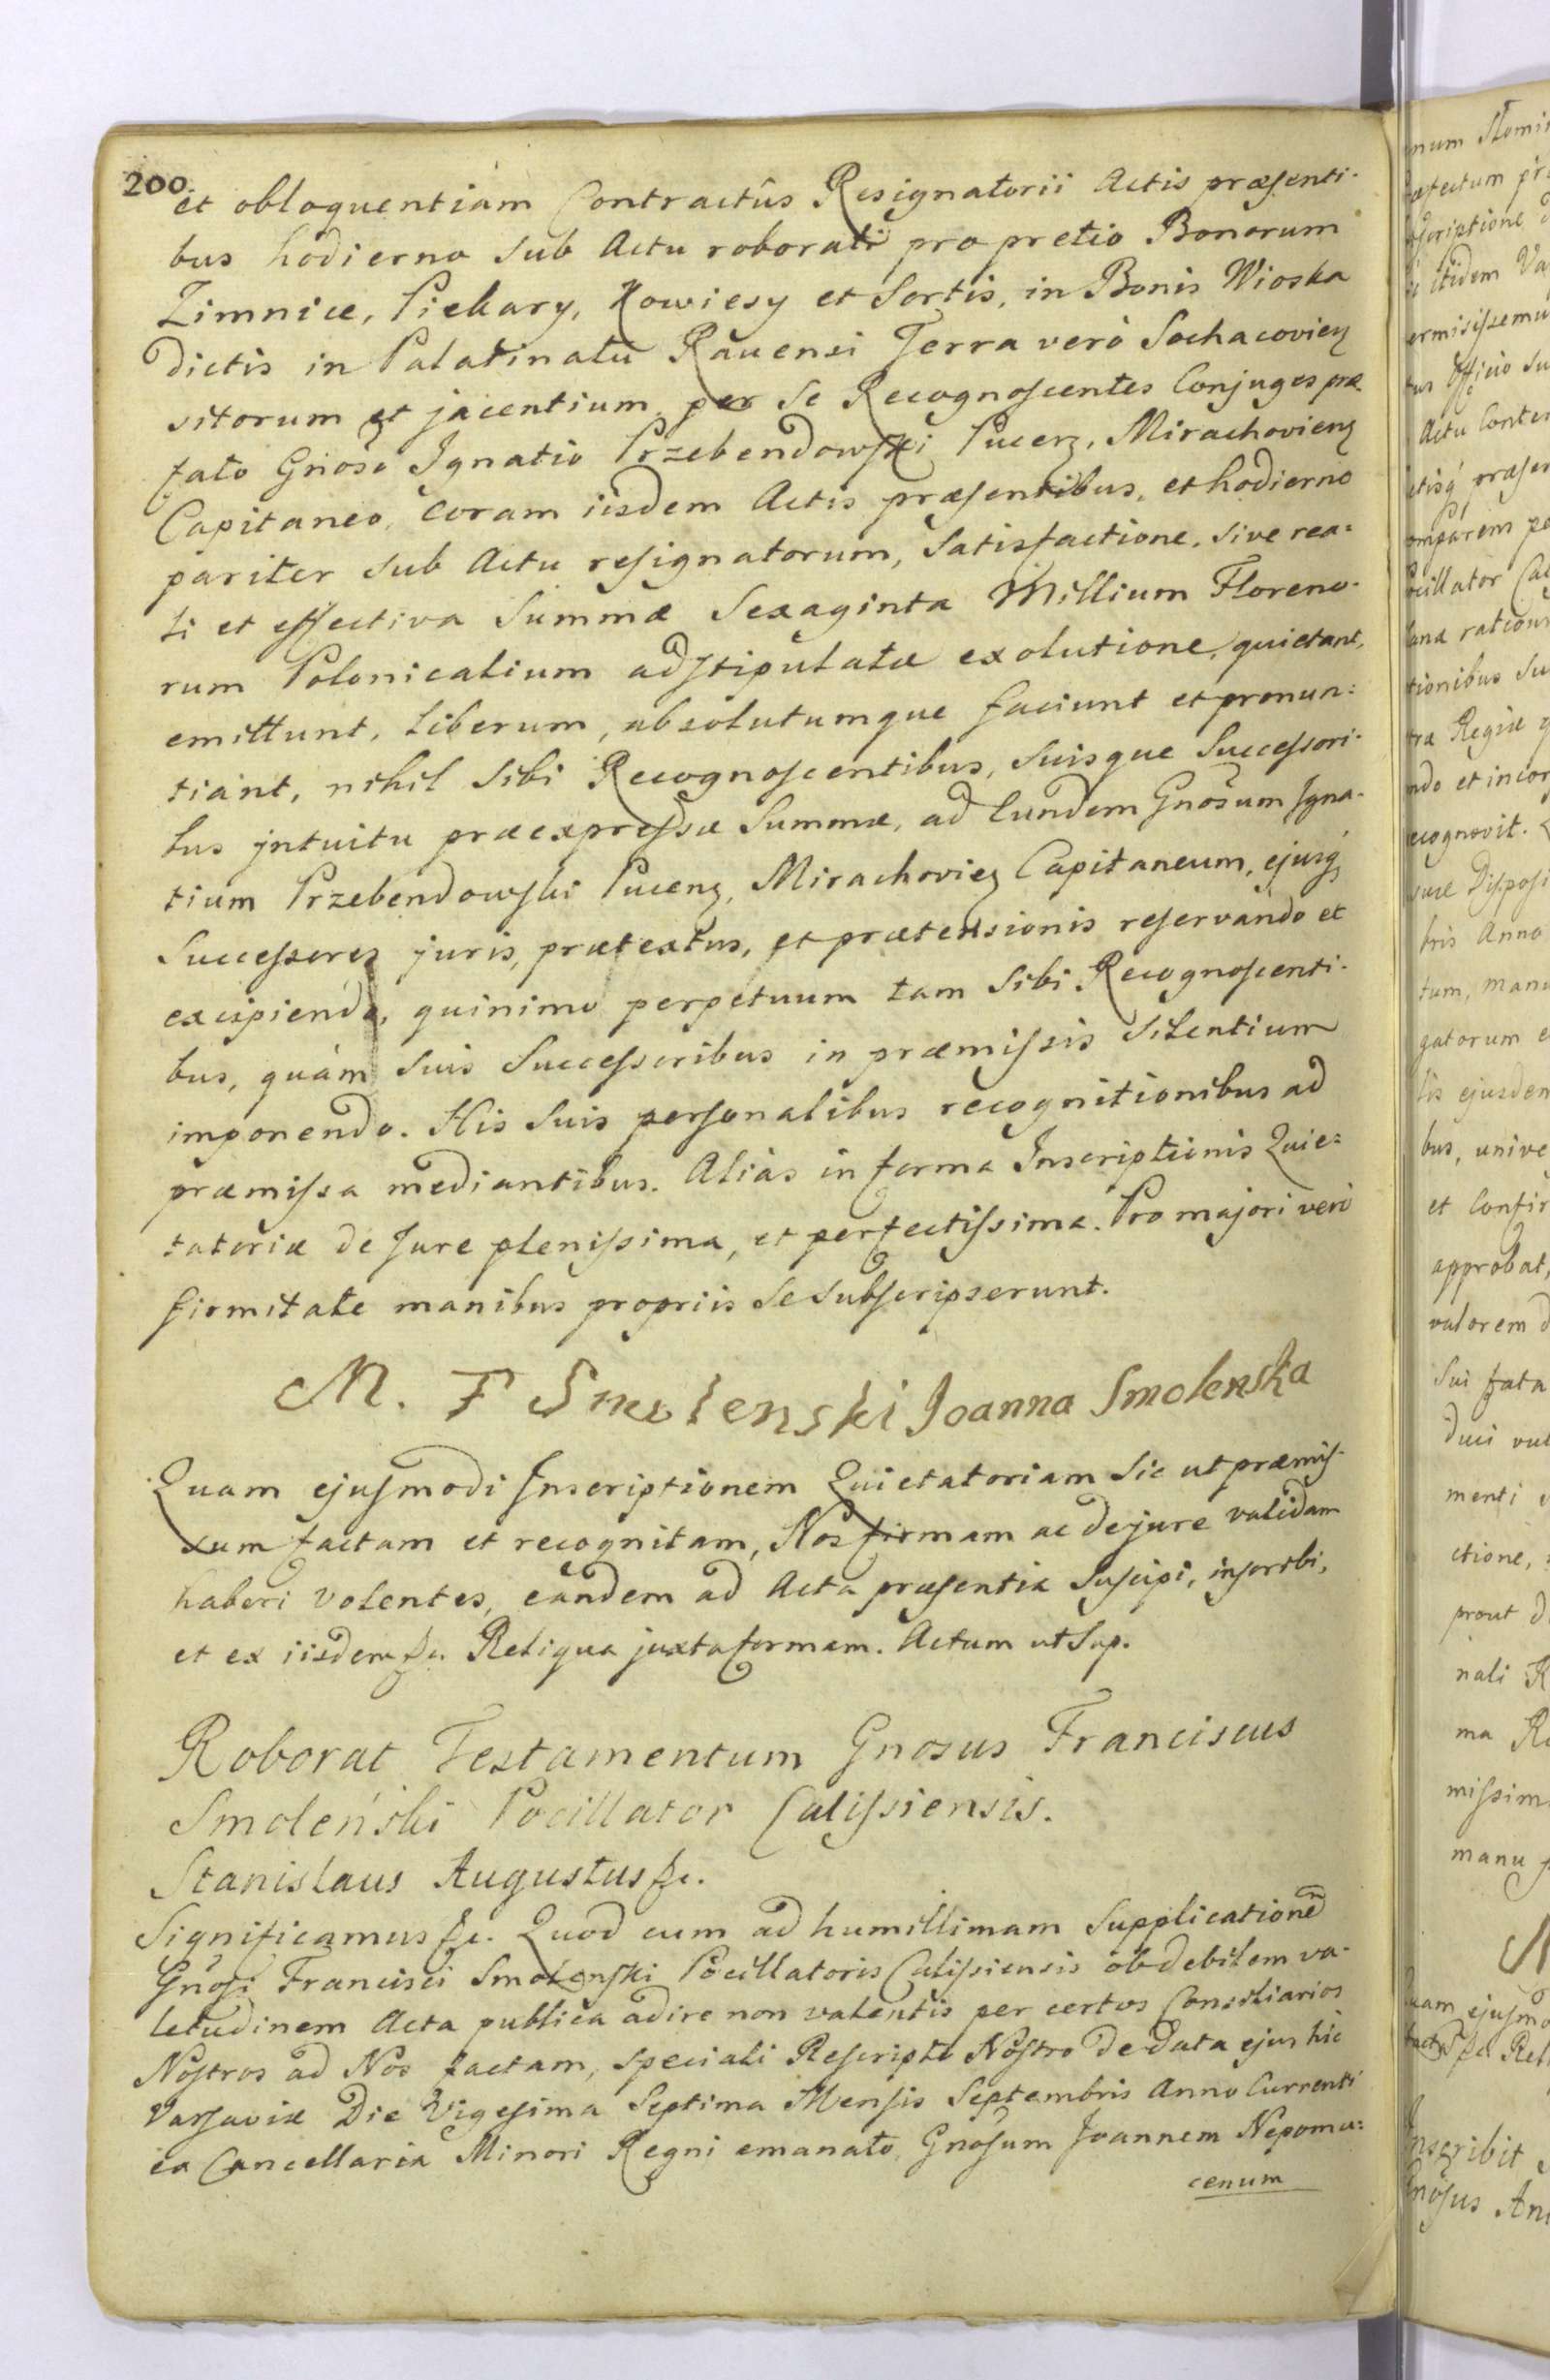 200.
et obloquentiam Contractûs Resignatorii Actis præsenti-
bus hodierno sub Actu roborati pro pretio Bonorum
Zimnice, Piekary, Kowiesy et Sortis, in Bonis Wioska
dictis in Palatinatu Ravensi Terra verò Sochacovien
sitorum et jacentium per se Recognoscentes Conjuges præ
fato Gnoso Ignatio Przebendowski Pucen, Mirachovien
Capitaneo, coram iisdem Actis præsentibus, et hodierno
pariter sub Actu resignatorum, satisfactione, sive rea=
li et effectiva Summæ Sexaginta Millium Floreno-
rum Polonicalium adstipulatæ exolutione, quietant,
emittunt, liberum, absolutumque faciunt et pronun=
tiant, nihil sibi Recognoscentibus, suisque Successori-
bus jntuitu præexpressæ Summæ, ad Eundem Gnosum Igna-
tium Przebendowski Pucen, Mirachovien Capitaneum, ejusq
Successores juris, prætextus, et prætensionis reservando et
excipiendo, quinimo perpetuum tam sibi Recognoscenti-
bus, quàm suis Successoribus in præmissis silentium
imponendo. His suis personalibus recognitionibus ad
præmissa mediantibus. Aliàs in forma Inscriptionis Quie=
tatoriæ de Jure plenissima, et perfectissima. Pro majori verò
firmitate manibus propriis se subscripserunt.
M. F Smolenski Joanna Smolenska
Quam ejusmodi Inscriptionem Quietatoriam sic ut præmis-
sum factam et recognitam, Nos firmam ac de jure validam
haberi volentes, eandem ad Acta præsentia suscipi, inscribi,
et ex iisdem &c. Reliqua juxta formam. Actum ut Sup.
Roborat Testamentum Gnosus Franciscus
Smoleński Pocillator Calissiensis.
Stanislaus Augustus &c.
Significamus &c. Quod cum ad humillimam Supplicationem
Gnosi Francisci Smolenski Pocillatoris Calissiensis ob debilem va-
letudinem Acta publica adire non valentis per certos Consiliarios
Nostros ad Nos factam, speciali Rescripto Nostro de data ejus hic
Varsaviæ Die Vigesima Septima Mensis Septembris Anno Currenti
ex Cancellaria Minori Regni emanato, Gnosum Joannem Nepomu=
cenum